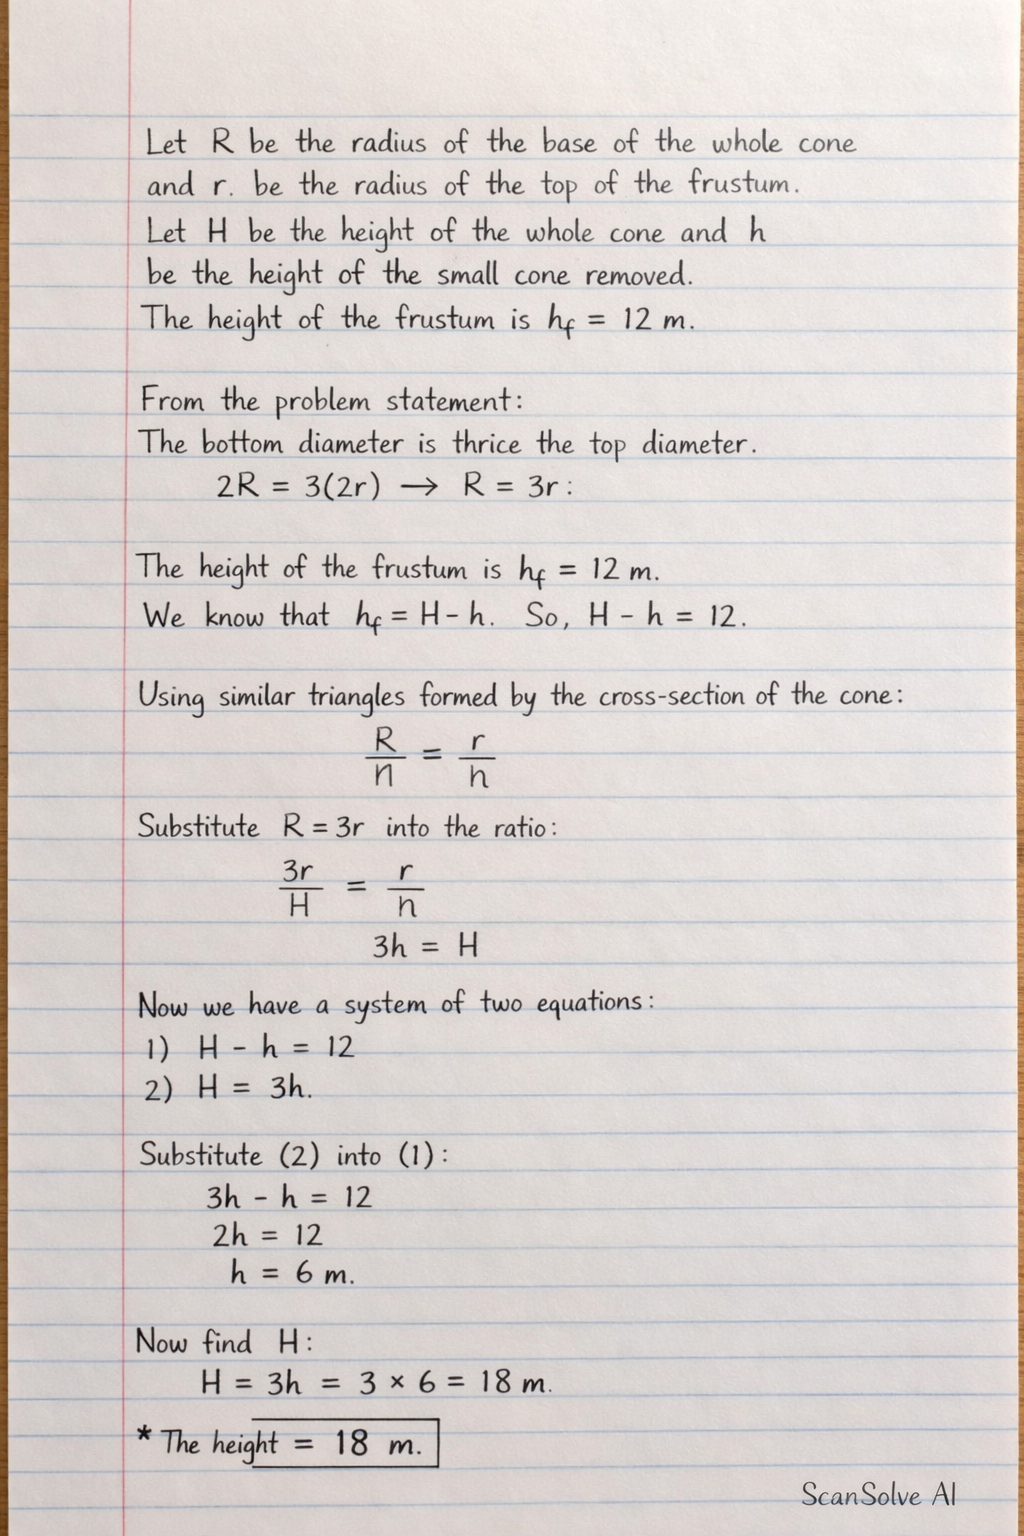 Let R be the radius of the base of the whole cone
and r. be the radius of the top of the frustum.
Let H be the height of the whole cone and h
be the height of the small cone removed.
The height of the frustum is h_f = 12 m.
From the problem statement:
The bottom diameter is thrice the top diameter.
2R = 3(2r) → R = 3r:
The height of the frustum is h_f = 12 m.
We know that h_f = H - h. So, H - h = 12.
Using similar triangles formed by the cross-section of the cone:
R/n = r/h
Substitute R = 3r into the ratio:
3r/H = r/h
3h = H
Now we have a system of two equations:
1) H - h = 12
2) H = 3h.
Substitute (2) into (1):
3h - h = 12
2h = 12
h = 6 m.
Now find H:
H = 3h = 3 × 6 = 18 m.
* The height = 18 m.
ScanSolve AI